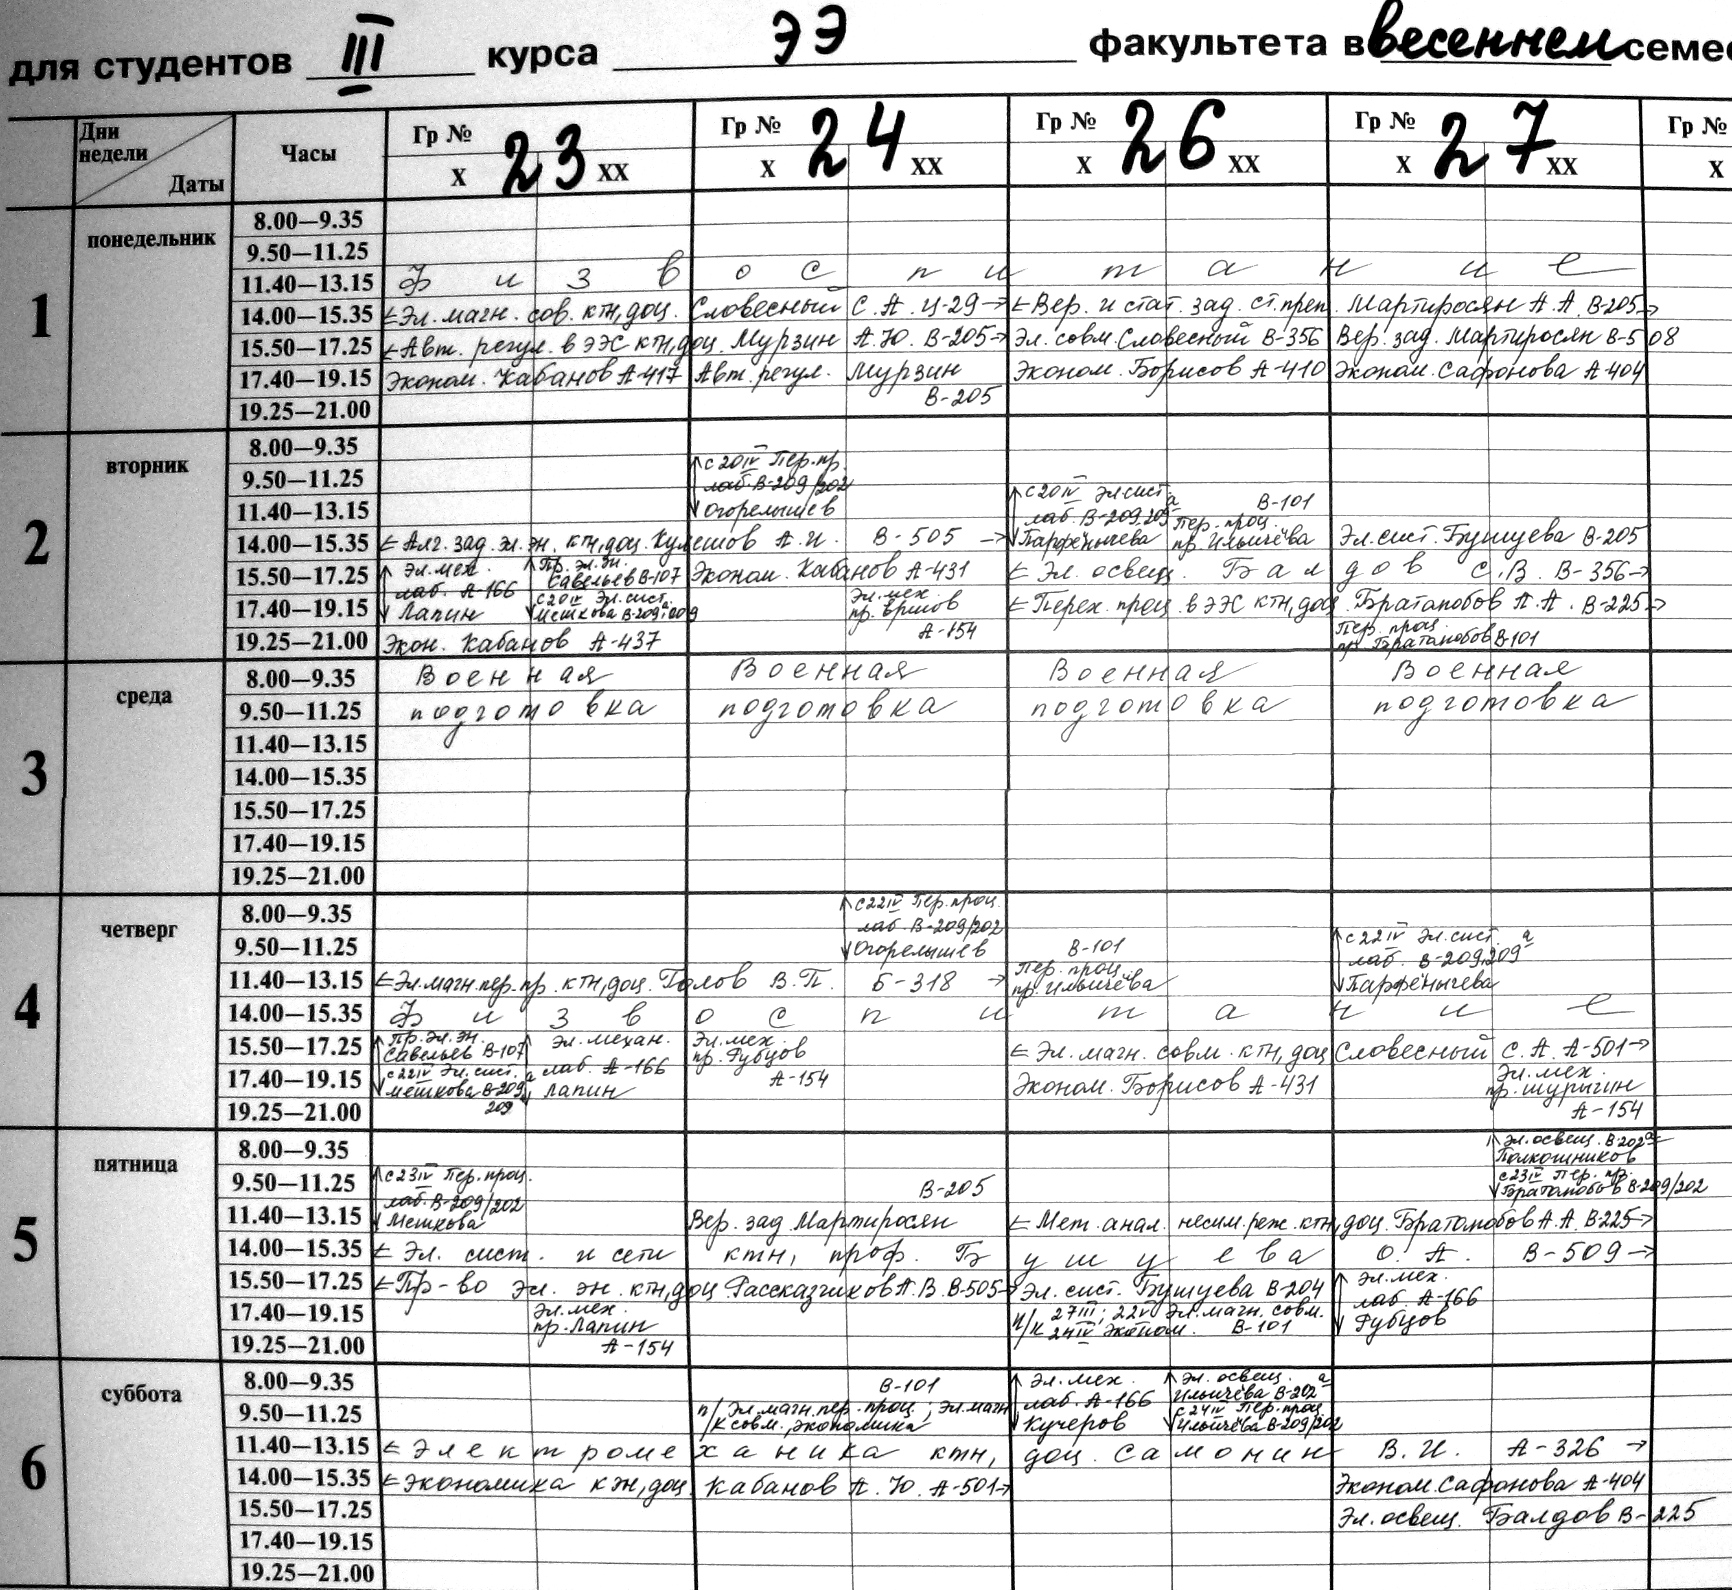 для студентов III курса ЭЭ факультета в весеннем семес
Дни недели Даты Часы Гр № 23 Гр № 24 Гр № 26 Гр № 27 Гр №
X XX X XX X XX X XX X
1 понедельник
8.00—9.35
9.50—11.25
11.40—13.15 Физвоспитание
14.00—15.35 Эл. магн. сов. ктн, доц. Словесный С. А. Ц-29 Вер. и стат. зад. ст. преп. Мартиросян А. А. В-205
15.50—17.25 Авт. регул. в ЭЭС ктн, доц. Мурзин А. Ю. В-205 Эл. совм. Словесный В-356 Вер. зад. Мартиросян В-508
17.40—19.15 Эконом. Кабанов А-417 Авт. регул. Мурзин Эконом. Борисов А-410 Эконом. Сафонова А-404
19.25—21.00 В-205
2 вторник
8.00—9.35 с 20 IV Пер. пр.
9.50—11.25 лаб. В-209/202 с 20 IV Эл. сист. В-101
11.40—13.15 Огорелышев лаб. В-209, 209а Пер. проц.
14.00—15.35 Алг. зад. эл. эн. ктн, доц. Кулешов А. И. В-505 Парфёнычева пр. Ильичёва Эл. сист. Бушуева В-205
15.50—17.25 Эл. мех. лаб. А-166 Пр. эл. эн. Савельев В-107 Эконом. Кабанов А-431 Эл. освещ. Балдов С. В. В-356
17.40—19.15 Лапин с 20 IV Эл. сист. Мешкова В-209а, 209 Эл. мех. пр. Ершов Перех. проц. в ЭЭС ктн, доц. Братолюбов А. А. В-225
19.25—21.00 Экон. Кабанов А-437 А-154 Пер. проц. пр. Братолюбов В-101
3 среда
8.00—9.35 Военная Военная Военная Военная
9.50—11.25 подготовка подготовка подготовка подготовка
11.40—13.15
14.00—15.35
15.50—17.25
17.40—19.15
19.25—21.00
4 четверг
8.00—9.35 с 22 IV Пер. проц. лаб. В-209/202
9.50—11.25 Огорелышев В-101 с 22 IV Эл. сист. лаб. В-209, 209а
11.40—13.15 Эл. магн. пер. пр. ктн, доц. Голов В. П. Б-318 Пер. проц. пр. Ильичёва Парфёнычева
14.00—15.35 Физвоспитание
15.50—17.25 Пр. эл. эн. Савельев В-107 Эл. механ. Эл. мех. пр. Рубцов Эл. магн. совм. ктн, доц. Словесный С. А. А-501
17.40—19.15 с 22 IV Эл. сист. Мешкова В-209а, лаб. А-166 Лапин А-154 Эконом. Борисов А-431 Эл. мех. пр. Шурыгин
19.25—21.00 209 А-154
5 пятница
8.00—9.35 Эл. освещ. В-202а Полкошников
9.50—11.25 с 23 IV Пер. проц. лаб. В-209/202 В-205 с 23 IV Пер. пр. Братолюбов В-209/202
11.40—13.15 Мешкова Вер. зад. Мартиросян Мет. анал. несим. реж. ктн, доц. Братолюбов А. А. В-225
14.00—15.35 Эл. сист. и сети ктн, проф. Бушуева О. А. В-509
15.50—17.25 Пр-во эл. эн. ктн, доц. Рассказчиков А. В. В-505 Эл. сист. Бушуева В-204 Эл. мех.
17.40—19.15 Эл. мех. пр. Лапин п/к 27 III; 22 V Эл. магн. совм. 24 IV Эконом. В-101 лаб. А-166 Рубцов
19.25—21.00 А-154
6 суббота
8.00—9.35 В-101 Эл. мех. Эл. освещ. Ильичёва В-202а
9.50—11.25 п/к Эл. магн. пер. проц.; Эл. магн. совм., экономика лаб. А-166 Кучеров с 24 IV Пер. проц. Ильичёва В-209/202
11.40—13.15 Электромеханика ктн, доц. Самонин В. И. А-326
14.00—15.35 Экономика кэн, доц. Кабанов А. Ю. А-501 Эконом. Сафонова А-404
15.50—17.25 Эл. освещ. Балдов В-225
17.40—19.15
19.25—21.00